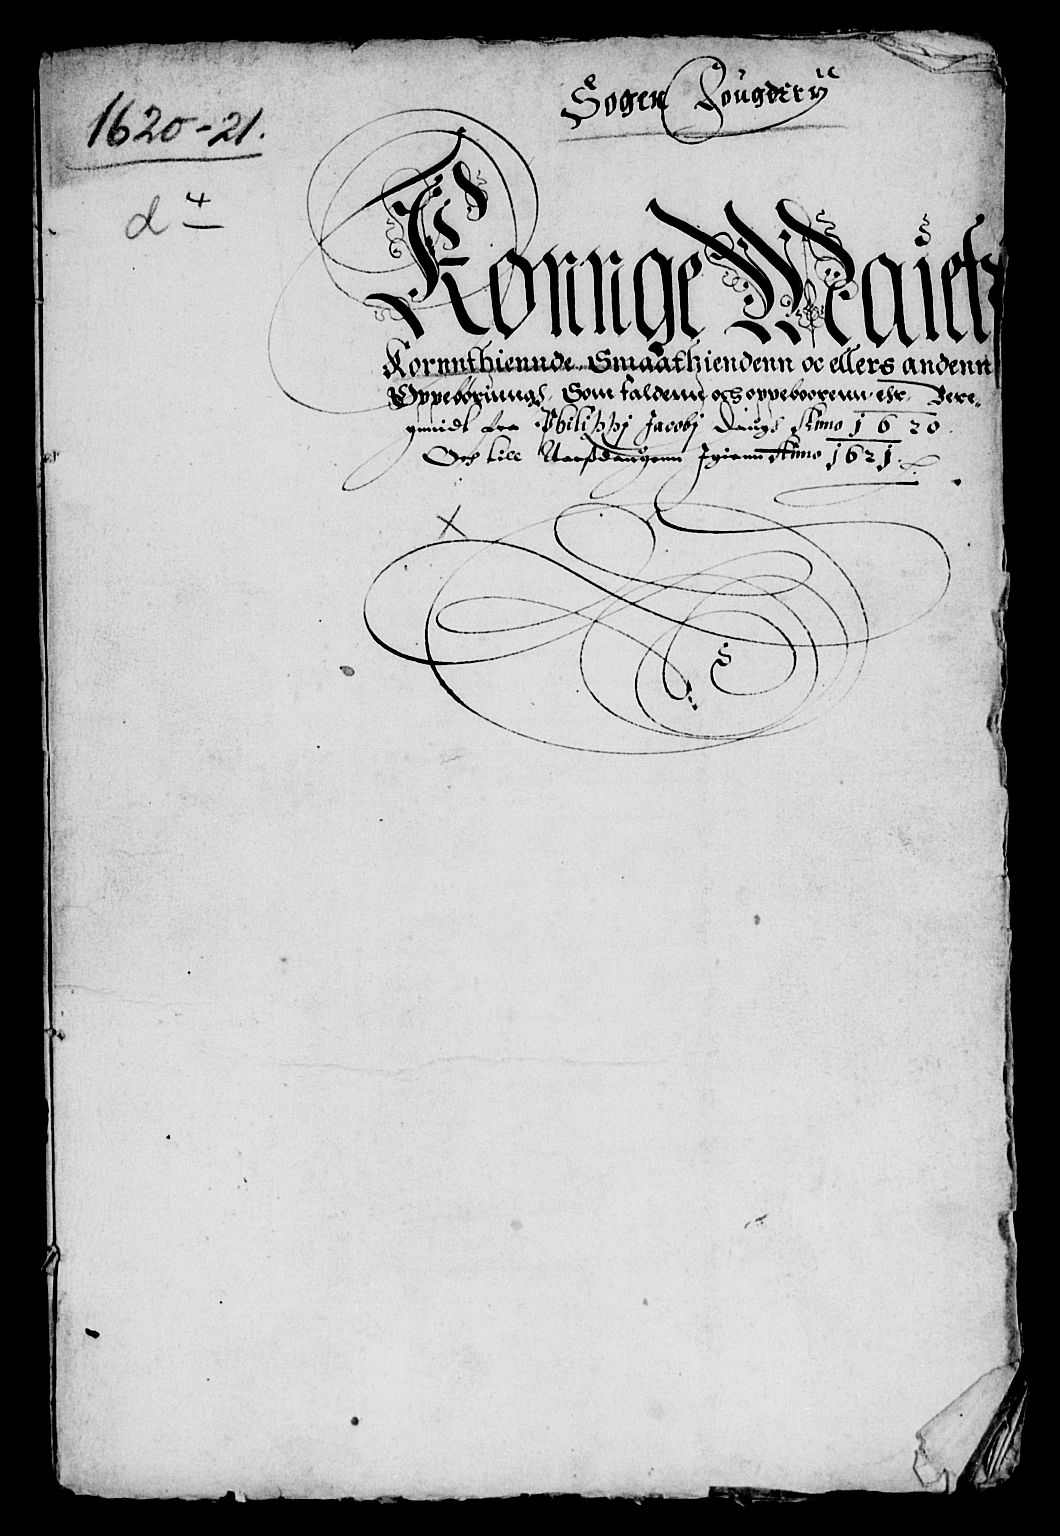 1620-21.
Sogen Lougderÿ
d 4
Konnge Maiett
Kornnthiennde Smaathiendenn oc ellers andenn
Oppebørinngs, Som faldenn och oppeboorenn ehr, Bere„
gnnidt fra Philippj Jacobj Daugs Anno 1620
Och till Aarßdaugenn Jgienn Anno 1621